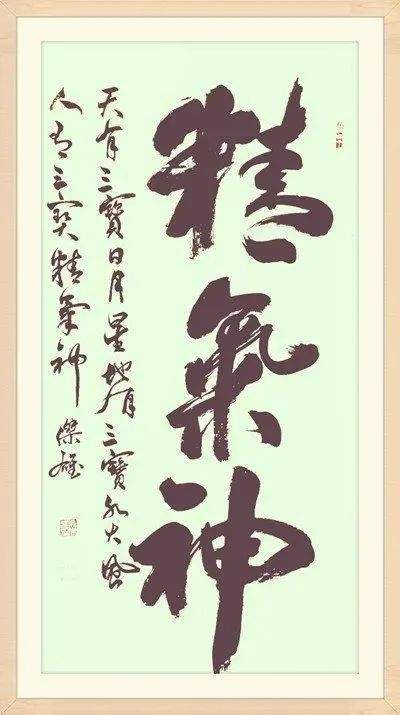 精氣神
天有三寶日月星地有三寶水火風
人有三寶精氣神 傑雄